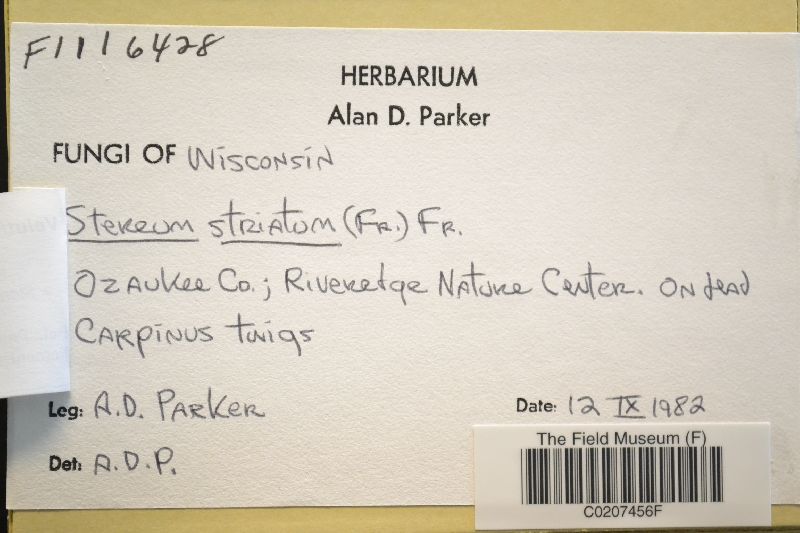 F1116428
HERBARIUM
Alan D. Parker
FUNGI OF Wisconsin
Stereum striatum (Fr.) Fr.
Ozaukee Co.; Riveredge Nature Center. On dead
Carpinus twigs
Leg: A.D. Parker
Date: 12 IX 1982
Det: A.D.P.
The Field Museum (F)
C0207456F